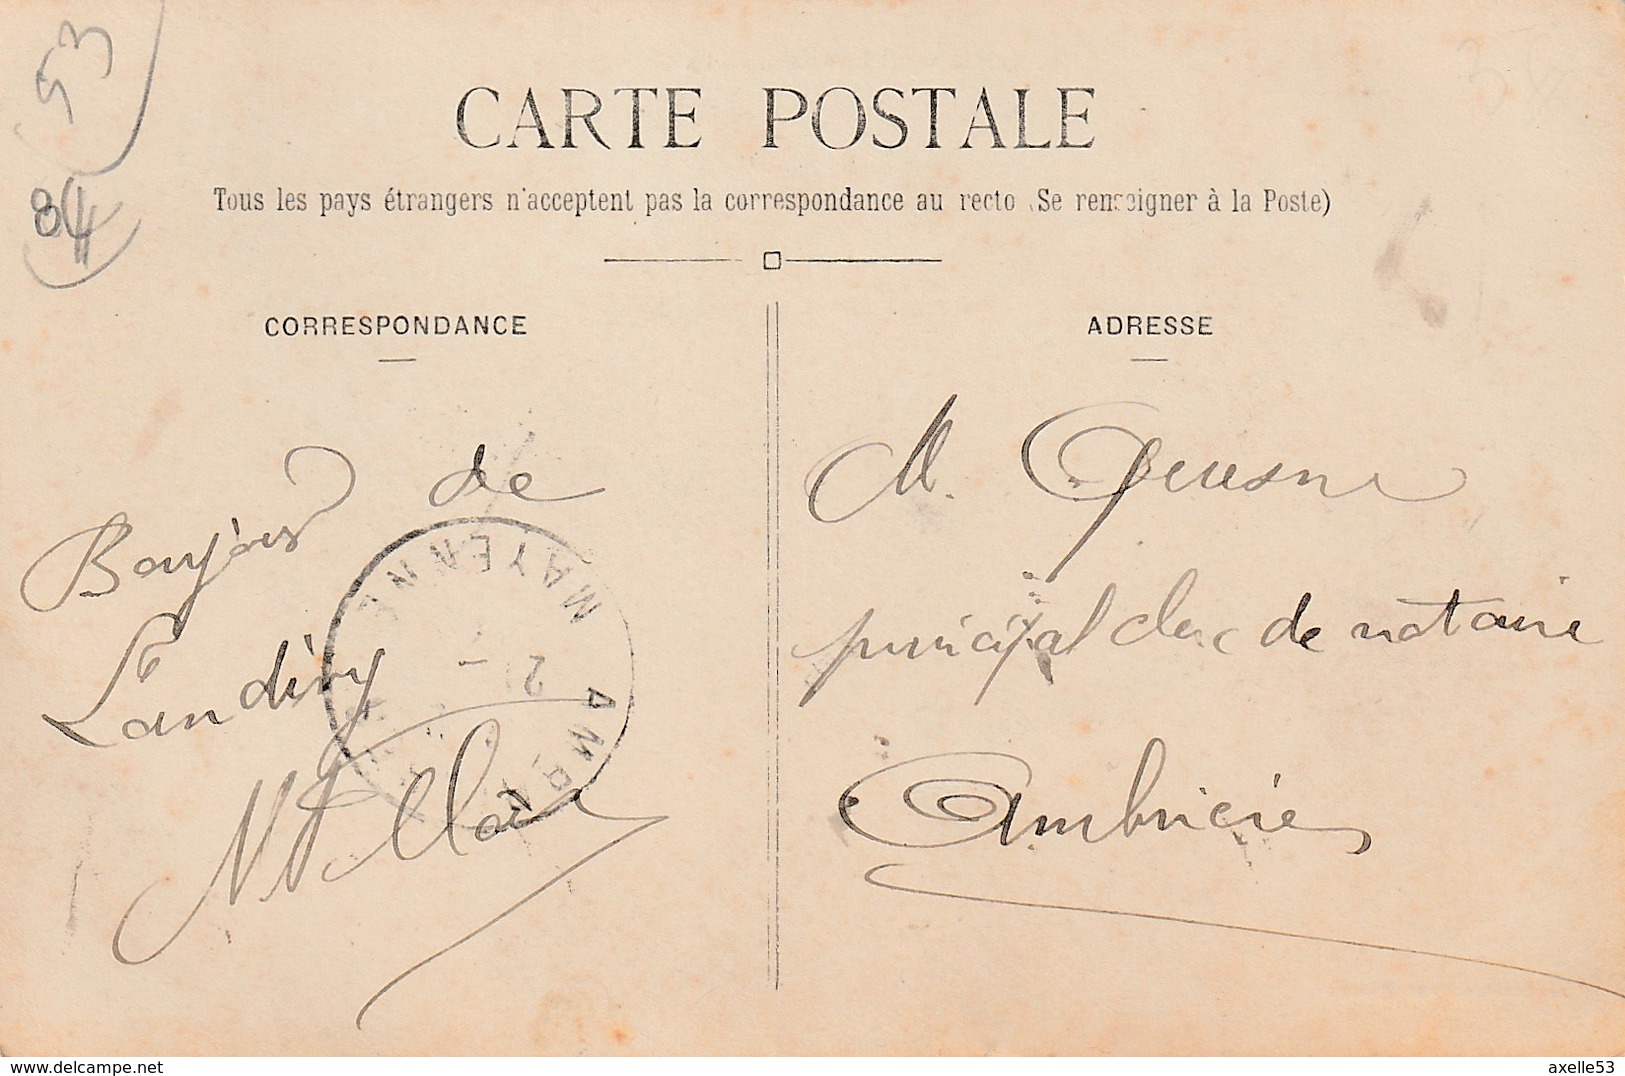 53
84
CARTE POSTALE
Tous les pays étrangers n'acceptent pas la correspondance au recto (Se renseigner à la Poste)
CORRESPONDANCE
Bonjour de
Landivy
ADRESSE
M. Quesne
principal clerc de notaire
Ambrières
MAYENNE
www.delcampe.net
axelle53